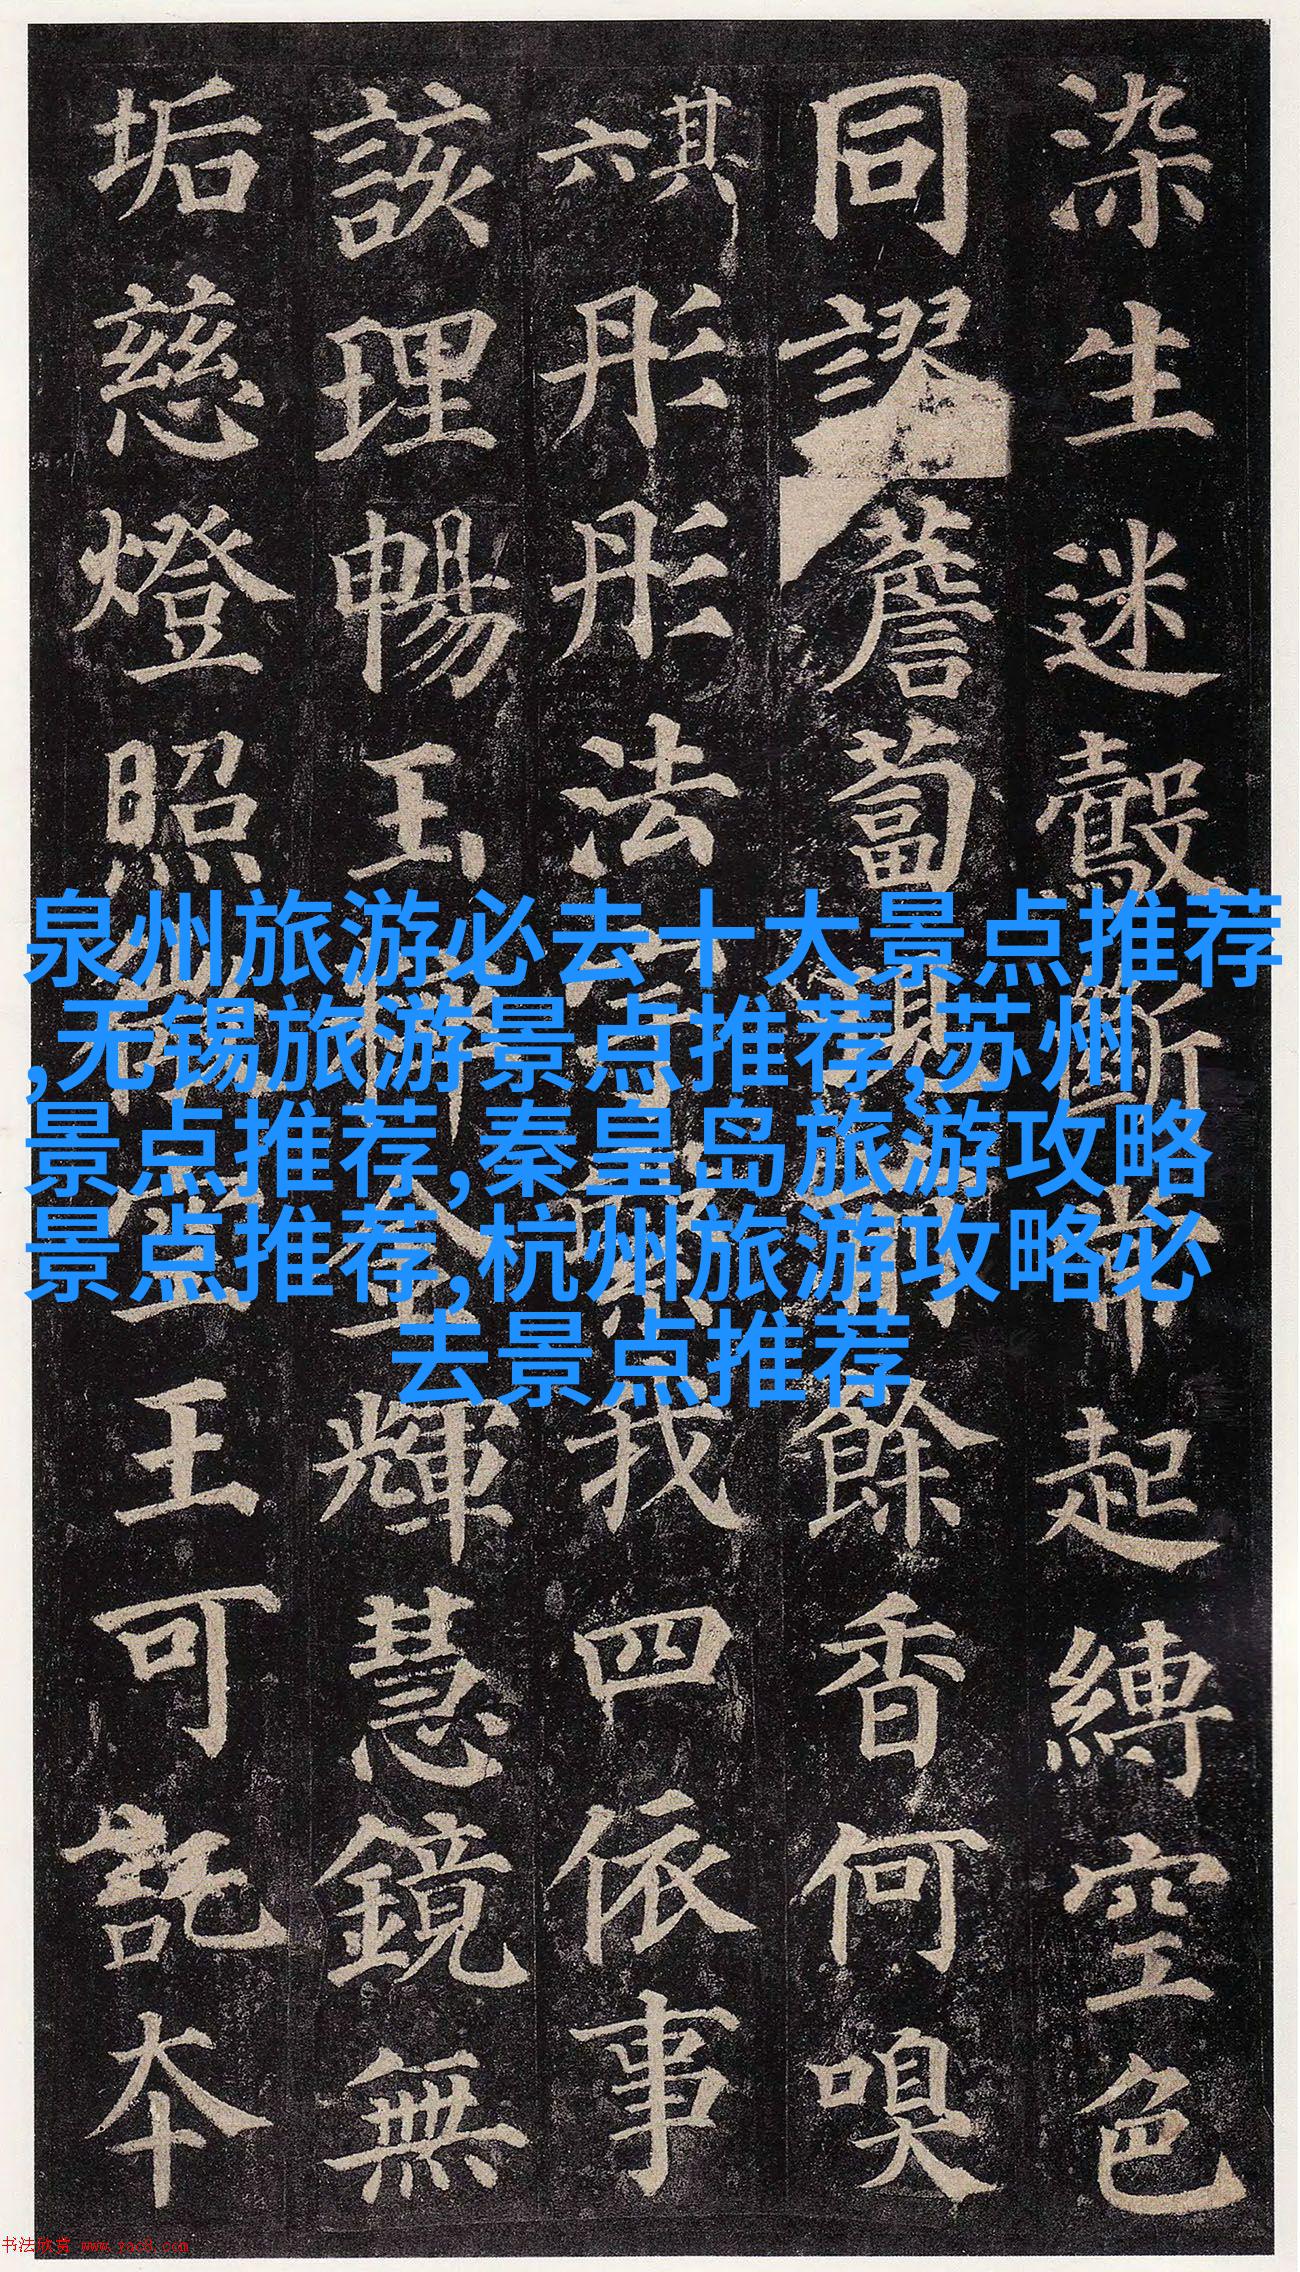 染生迷鷇斷常起縛空色
同謬薝蔔現前餘香何嗅
其六彤彤法宇繄我四依事
該理暢玉粹金輝慧鏡無
垢慈燈照微空王可託本
泉州旅游必去十大景点推荐
,无锡旅游景点推荐,苏州
景点推荐,秦皇岛旅游攻略
景点推荐,杭州旅游攻略必
去景点推荐
书法欣赏 www.yac8.com